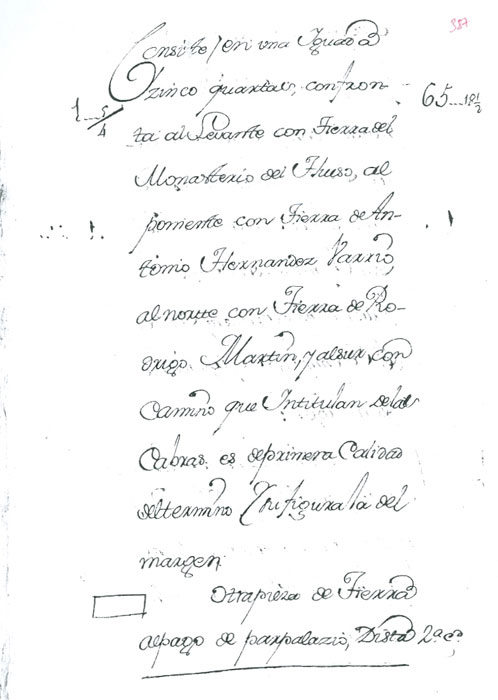 387
Consiste en una Iguada
Zinco quartas, confron-
1 5/4
65
ta al Levante con Tierra del
Monasterio del Hueso, al
poniente con Tierra de An-
tonio Hernandez Varrio,
al norte con Tierra de Ro-
drigo Martin, y al sur con
Camino que Intitulan de las
Cabras, es de primera Calidad
del termino su figura la del
margen
Otra pieza de Tierra
al pago de parpalazio, Dista